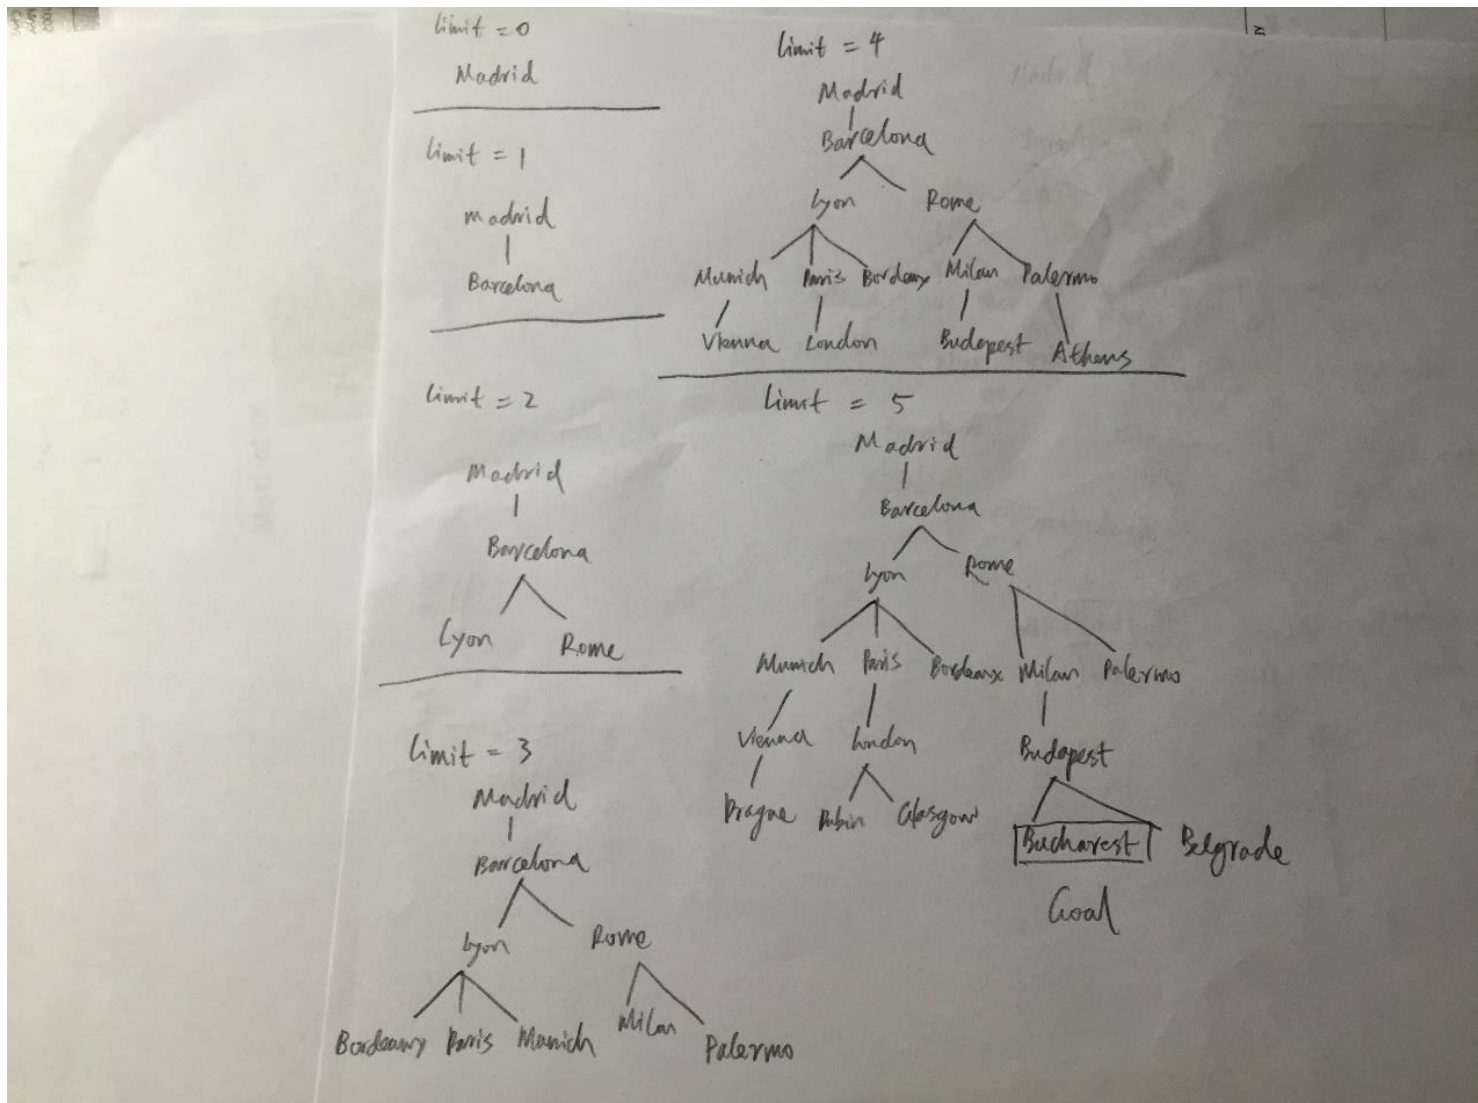 limit = 0
Madrid
limit = 1
Madrid
Barcelona
limit = 2
Madrid
Barcelona
Lyon Rome
limit = 3
Madrid
Barcelona
Lyon Rome
Bordeaux Paris Munich Milan Palermo
limit = 4
Madrid
Barcelona
Lyon Rome
Munich Paris Bordeaux Milan Palermo
Vienna London Budapest Athens
limit = 5
Madrid
Barcelona
Lyon Rome
Munich Paris Bordeaux Milan Palermo
Vienna London Budapest
Prague Dubin Glasgow Bucharest Belgrade
Goal